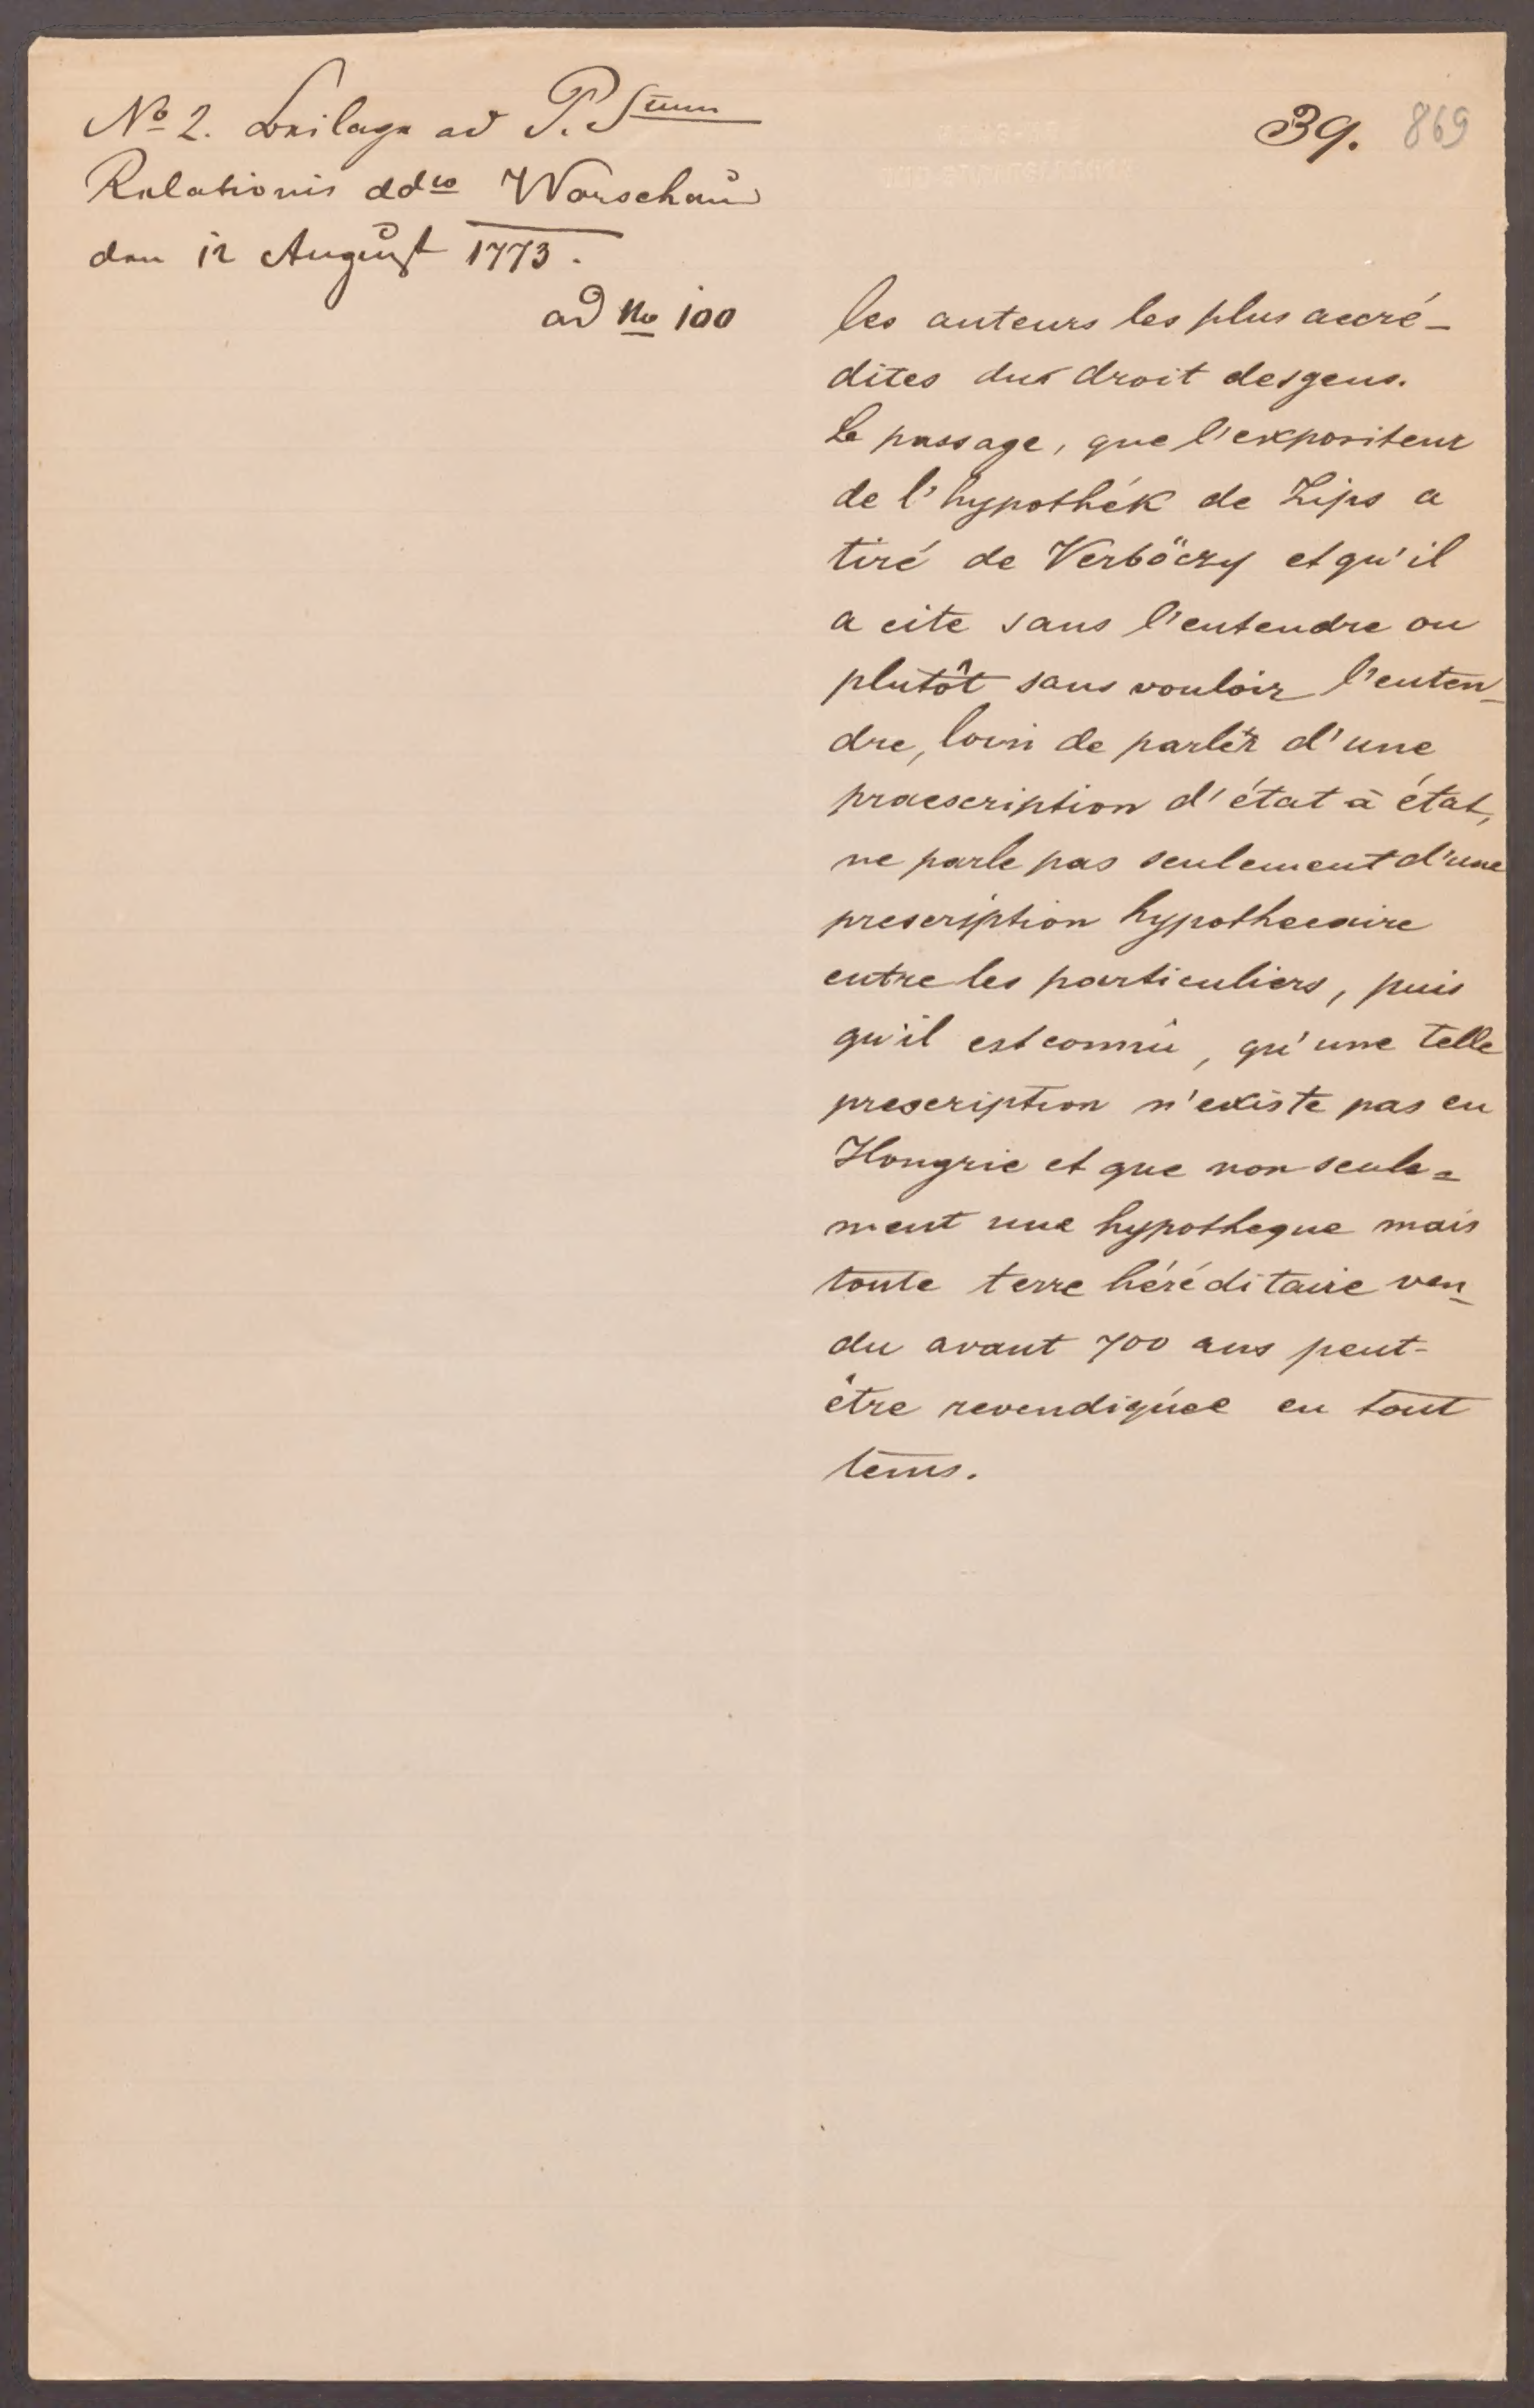 No 2. Beilage ad P. Stum
Relationis ddto Warschau
den 12 August 1773.
ad No 100
39. 869
les auteurs les plus accré-
dites du droit des gens.
Le passage, que l'expositeur
de l'hypothék de Zips a
tiré de Verböczy et qu'il
a cite sans l'entendre ou
plutôt sans vouloir l'enten-
dre, loin de parler d'une
praescription d'état à état,
ne parle pas seulement d'une
prescription hypothecaire
entre les particuliers, puis
qu'il est connû, qu'une telle
prescription n'existe pas en
Hongrie et que non seule=
ment une hypotheque mais
toute terre héréditaire ven-
du avant 700 ans peut-
être revendiquée en tout
tems.